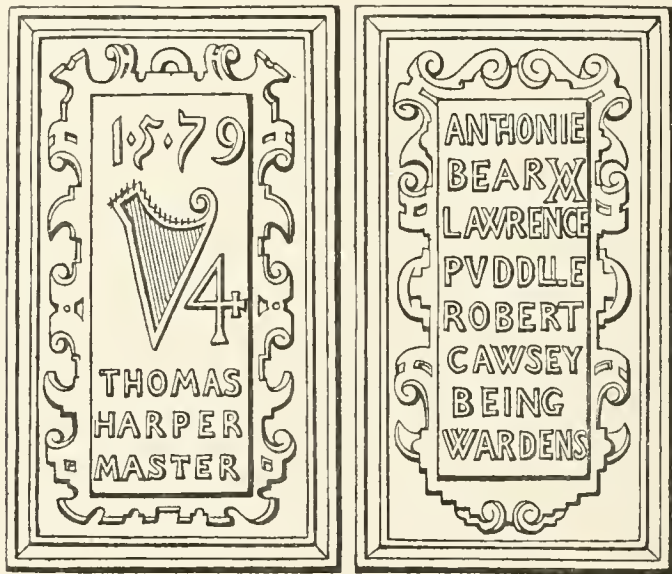 1·5·79
4
THOMAS
HARPER
MASTER
ANTHONIE
BEARA
LAWRENCE
PVDDLLE
ROBERT
CAWSEY
BEING
WARDENS